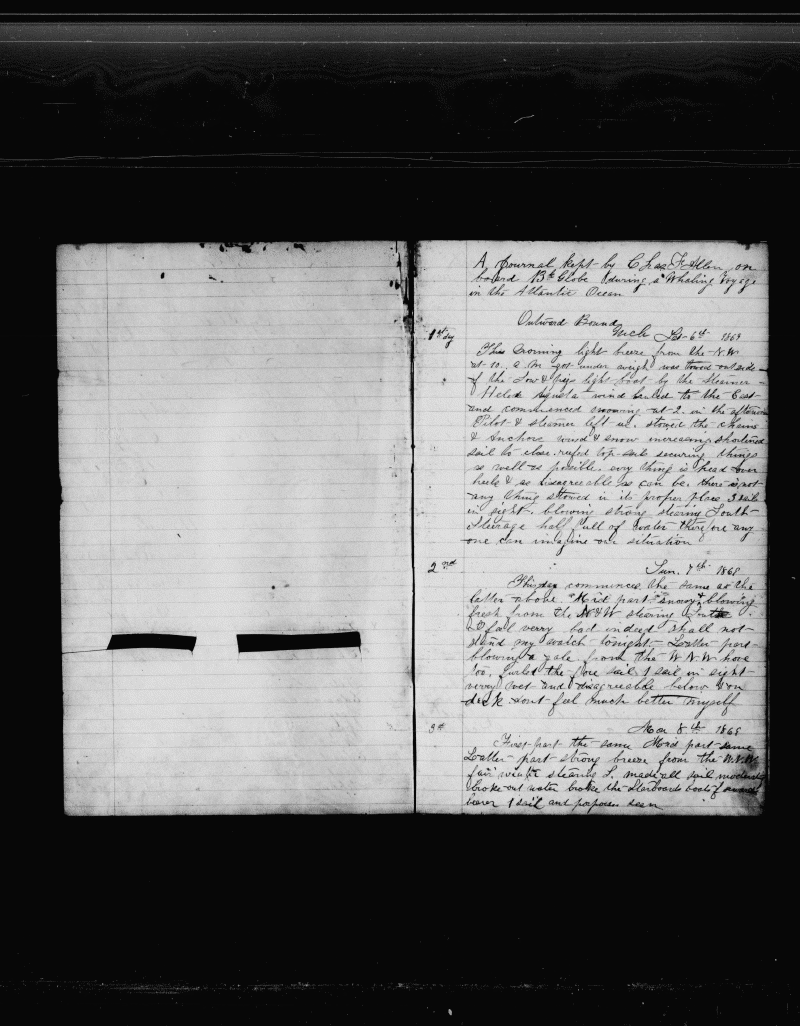 A Journal kept by Chas F Allen on
board Bk Globe during a Whaling Voyge
in the Atlantic Ocean
Outward Bound
1st dy
Feb 6th 1869
This morning light breeze from the N.W.
at 10. a.m. got under weigh was towed outside
of the Sow & pigs light boat by the steamer
Helen Augusta wind hauled to the East
and commenced snowing at 2. in the afternoon
Pilot & steamer left us. stowed the chains
& Anchors wind & snow increasing shortened
sail to close reefed top sails securing things
as well as posible. evry thing is head over
heels & as disagreeable as can be. there is not
any thing stowed in its proper place 3 sails
in sight. blowing strong steering South
Steerage half full of water therefore any
one can imagine our situation
2nd
Sun. 7th 1869
This day commences the same as the
latter above. Mid part snowy & blowing
fresh from the steering South
I feel verry bad indeed shall not
stand my watch tonight. Latter part
blowing a gale from the W N W hove
too, furled the fore sail 1 sail in sight
verry wet and disagreeable below & on
deck dont feel much better myself
3d
Mon 8th 1869
First part the same Mid part same
Latter part strong breeze from the W.N.W.
fair wind steering S. made all sail
broke out water broke the Starboard boats
bearer 1 sail and porpoises seen